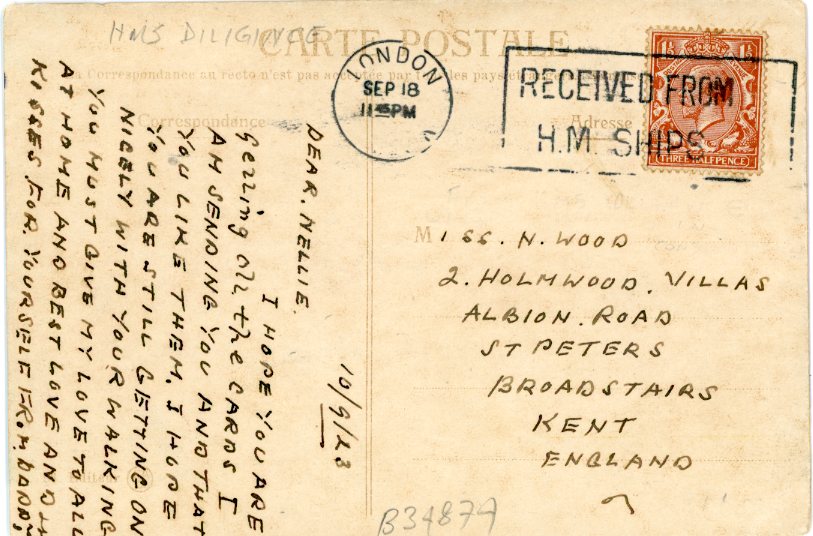 HMS DILIGENCE
CARTE POSTALE
Correspondance au recto n'est pas acceptée par les pays
Correspondance
Adresse
LONDON
SEP 18
11 45 PM
RECEIVED FROM
H.M. SHIPS
1½ 1½
THREE HALFPENCE
10/9/23
DEAR. NELLIE.
I HOPE YOU ARE
Getting all the CARDS I
AM SENDING YOU AND THAT
YOU LIKE THEM. I HOPE
YOU ARE STILL GETTING ON
NICELY WITH YOUR WALKING
YOU MUST GIVE MY LOVE TO ALL
AT HOME AND BEST LOVE AND
KISSES FOR. YOURSELF FROM. DADDY
MISS. N. WOOD
2. HOLMWOOD. VILLAS
ALBION. ROAD
ST PETERS
BROADSTAIRS
KENT
ENGLAND
B34874